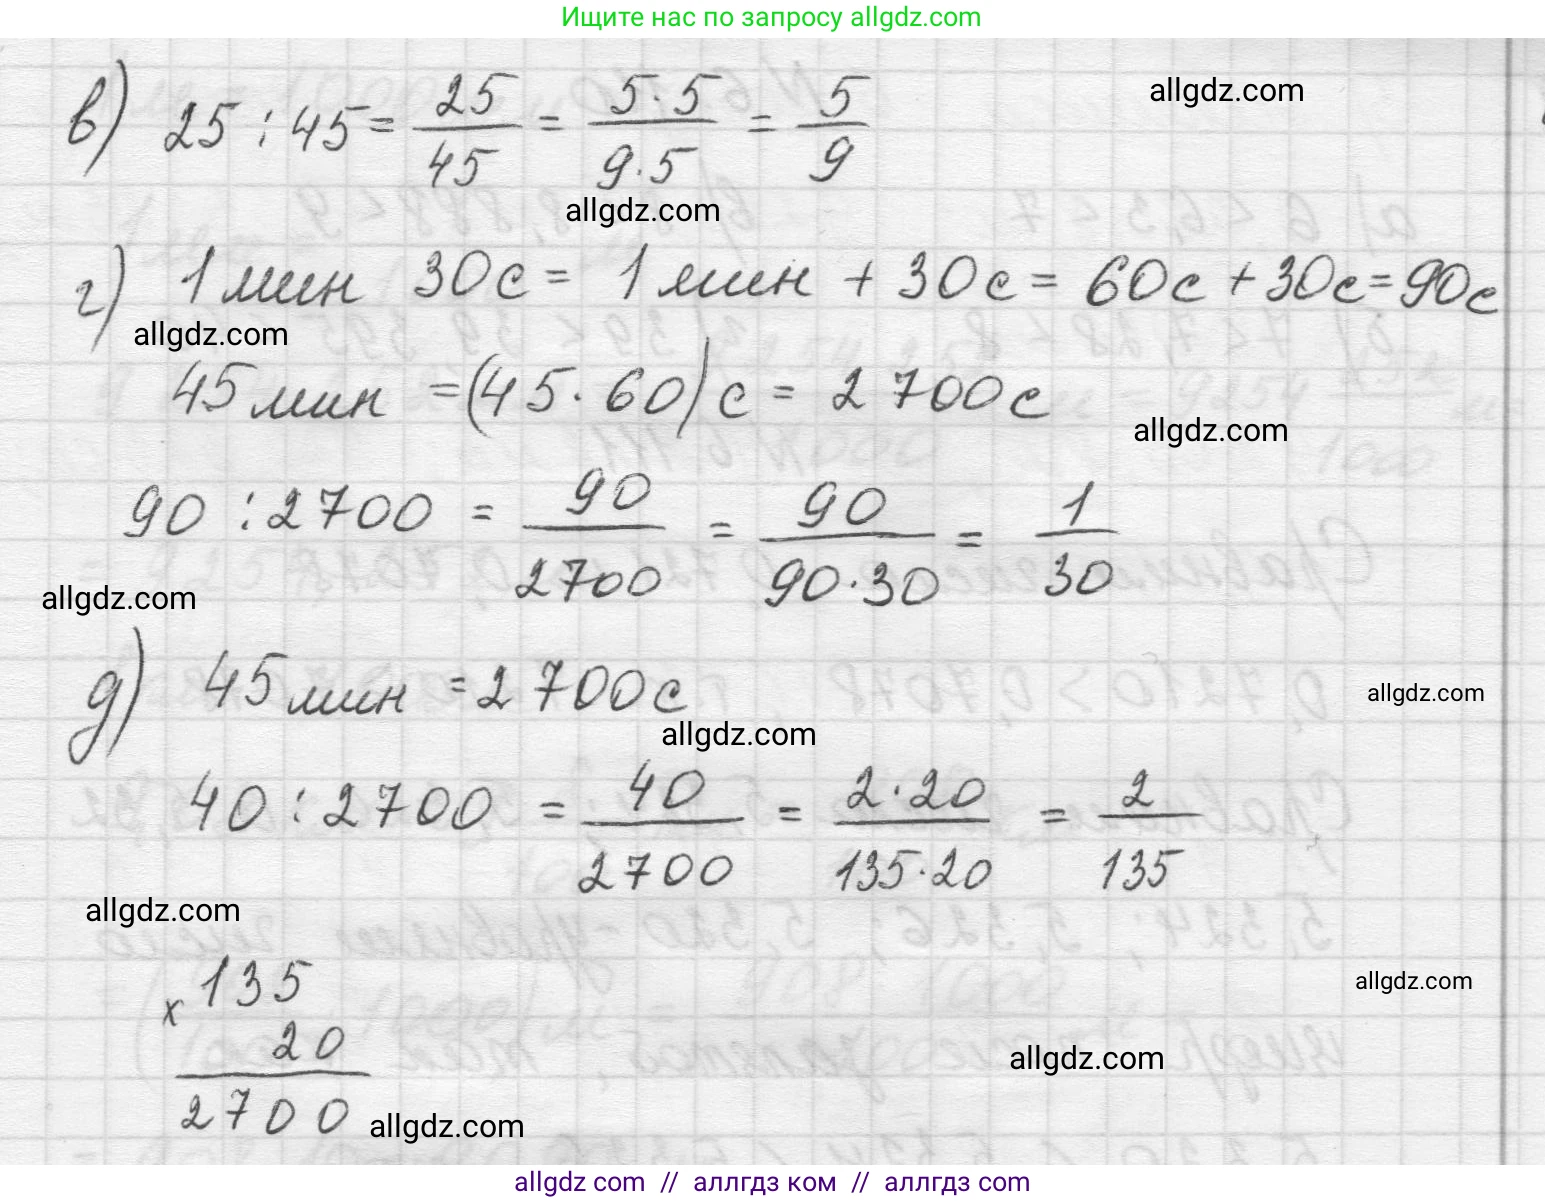 Ищите нас по запросу allgdz.com
allgdz.com
в) 25 : 45 = 25/45 = 5·5/9·5 = 5/9
allgdz.com
г) 1 мин 30 с = 1 мин + 30 с = 60 с + 30 с = 90 с
allgdz.com
45 мин = (45 · 60) с = 2 700 с
allgdz.com
90 : 2700 = 90/2700 = 90/90·30 = 1/30
allgdz.com
д) 45 мин = 2 700 с
allgdz.com
allgdz.com
40 : 2700 = 40/2700 = 2·20/135·20 = 2/135
allgdz.com
x 135
20
2700
allgdz.com
allgdz.com
allgdz.com
allgdz com // аллгдз ком // аллгдз com